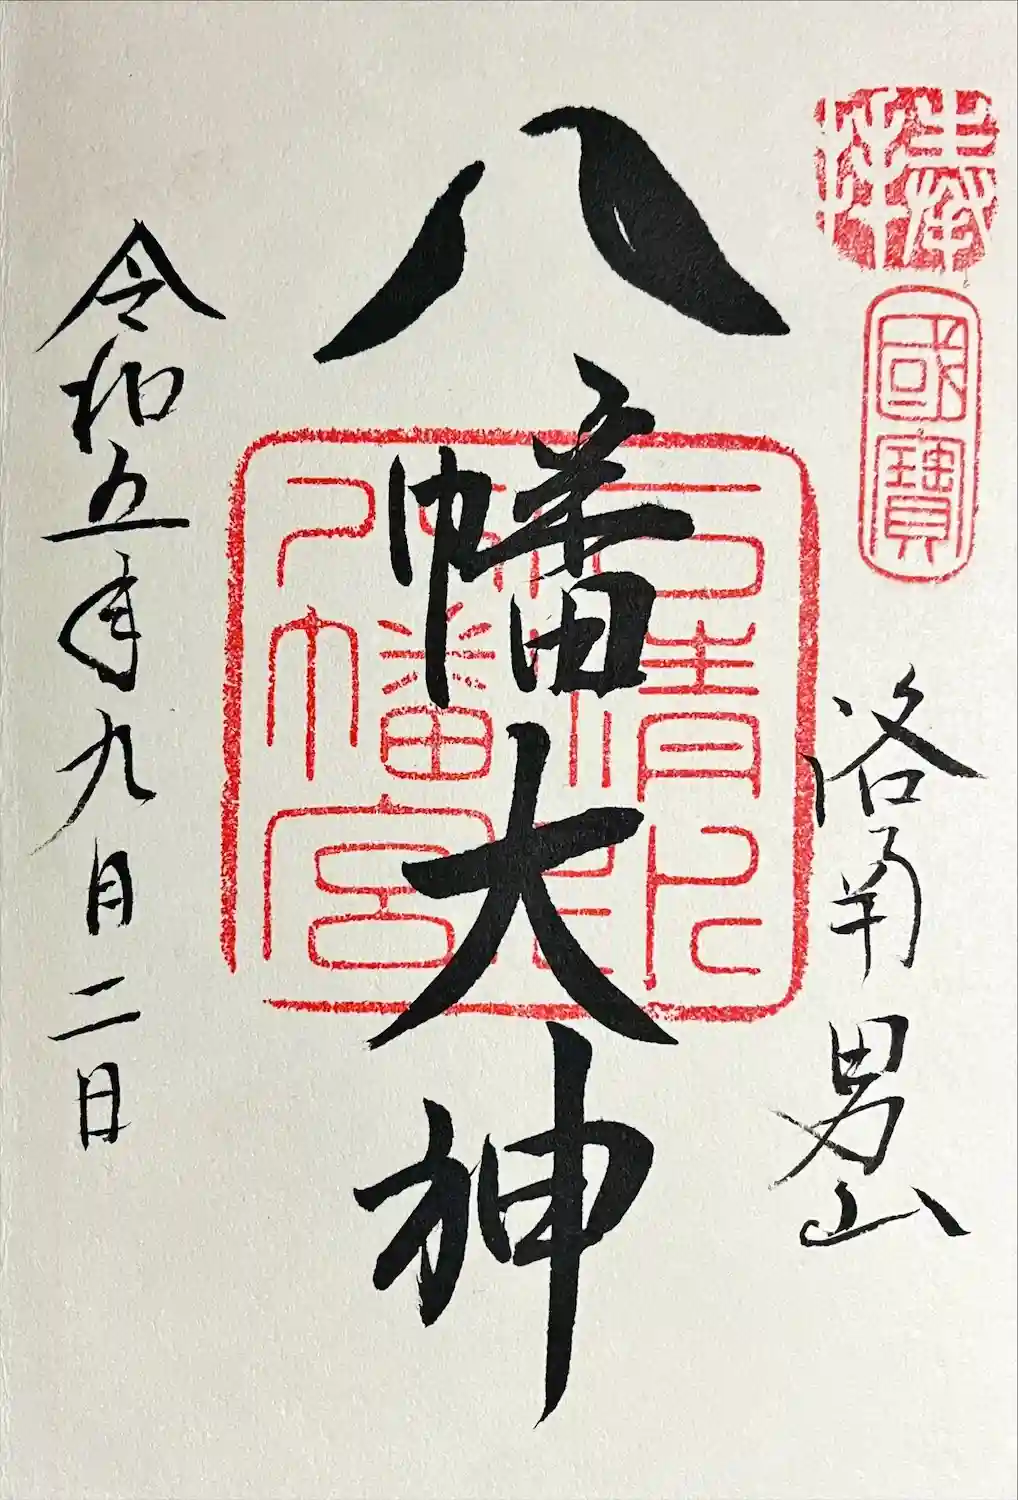 奉拝
國寶
洛南男山
八幡大神
八幡宮
令和五年九月二日